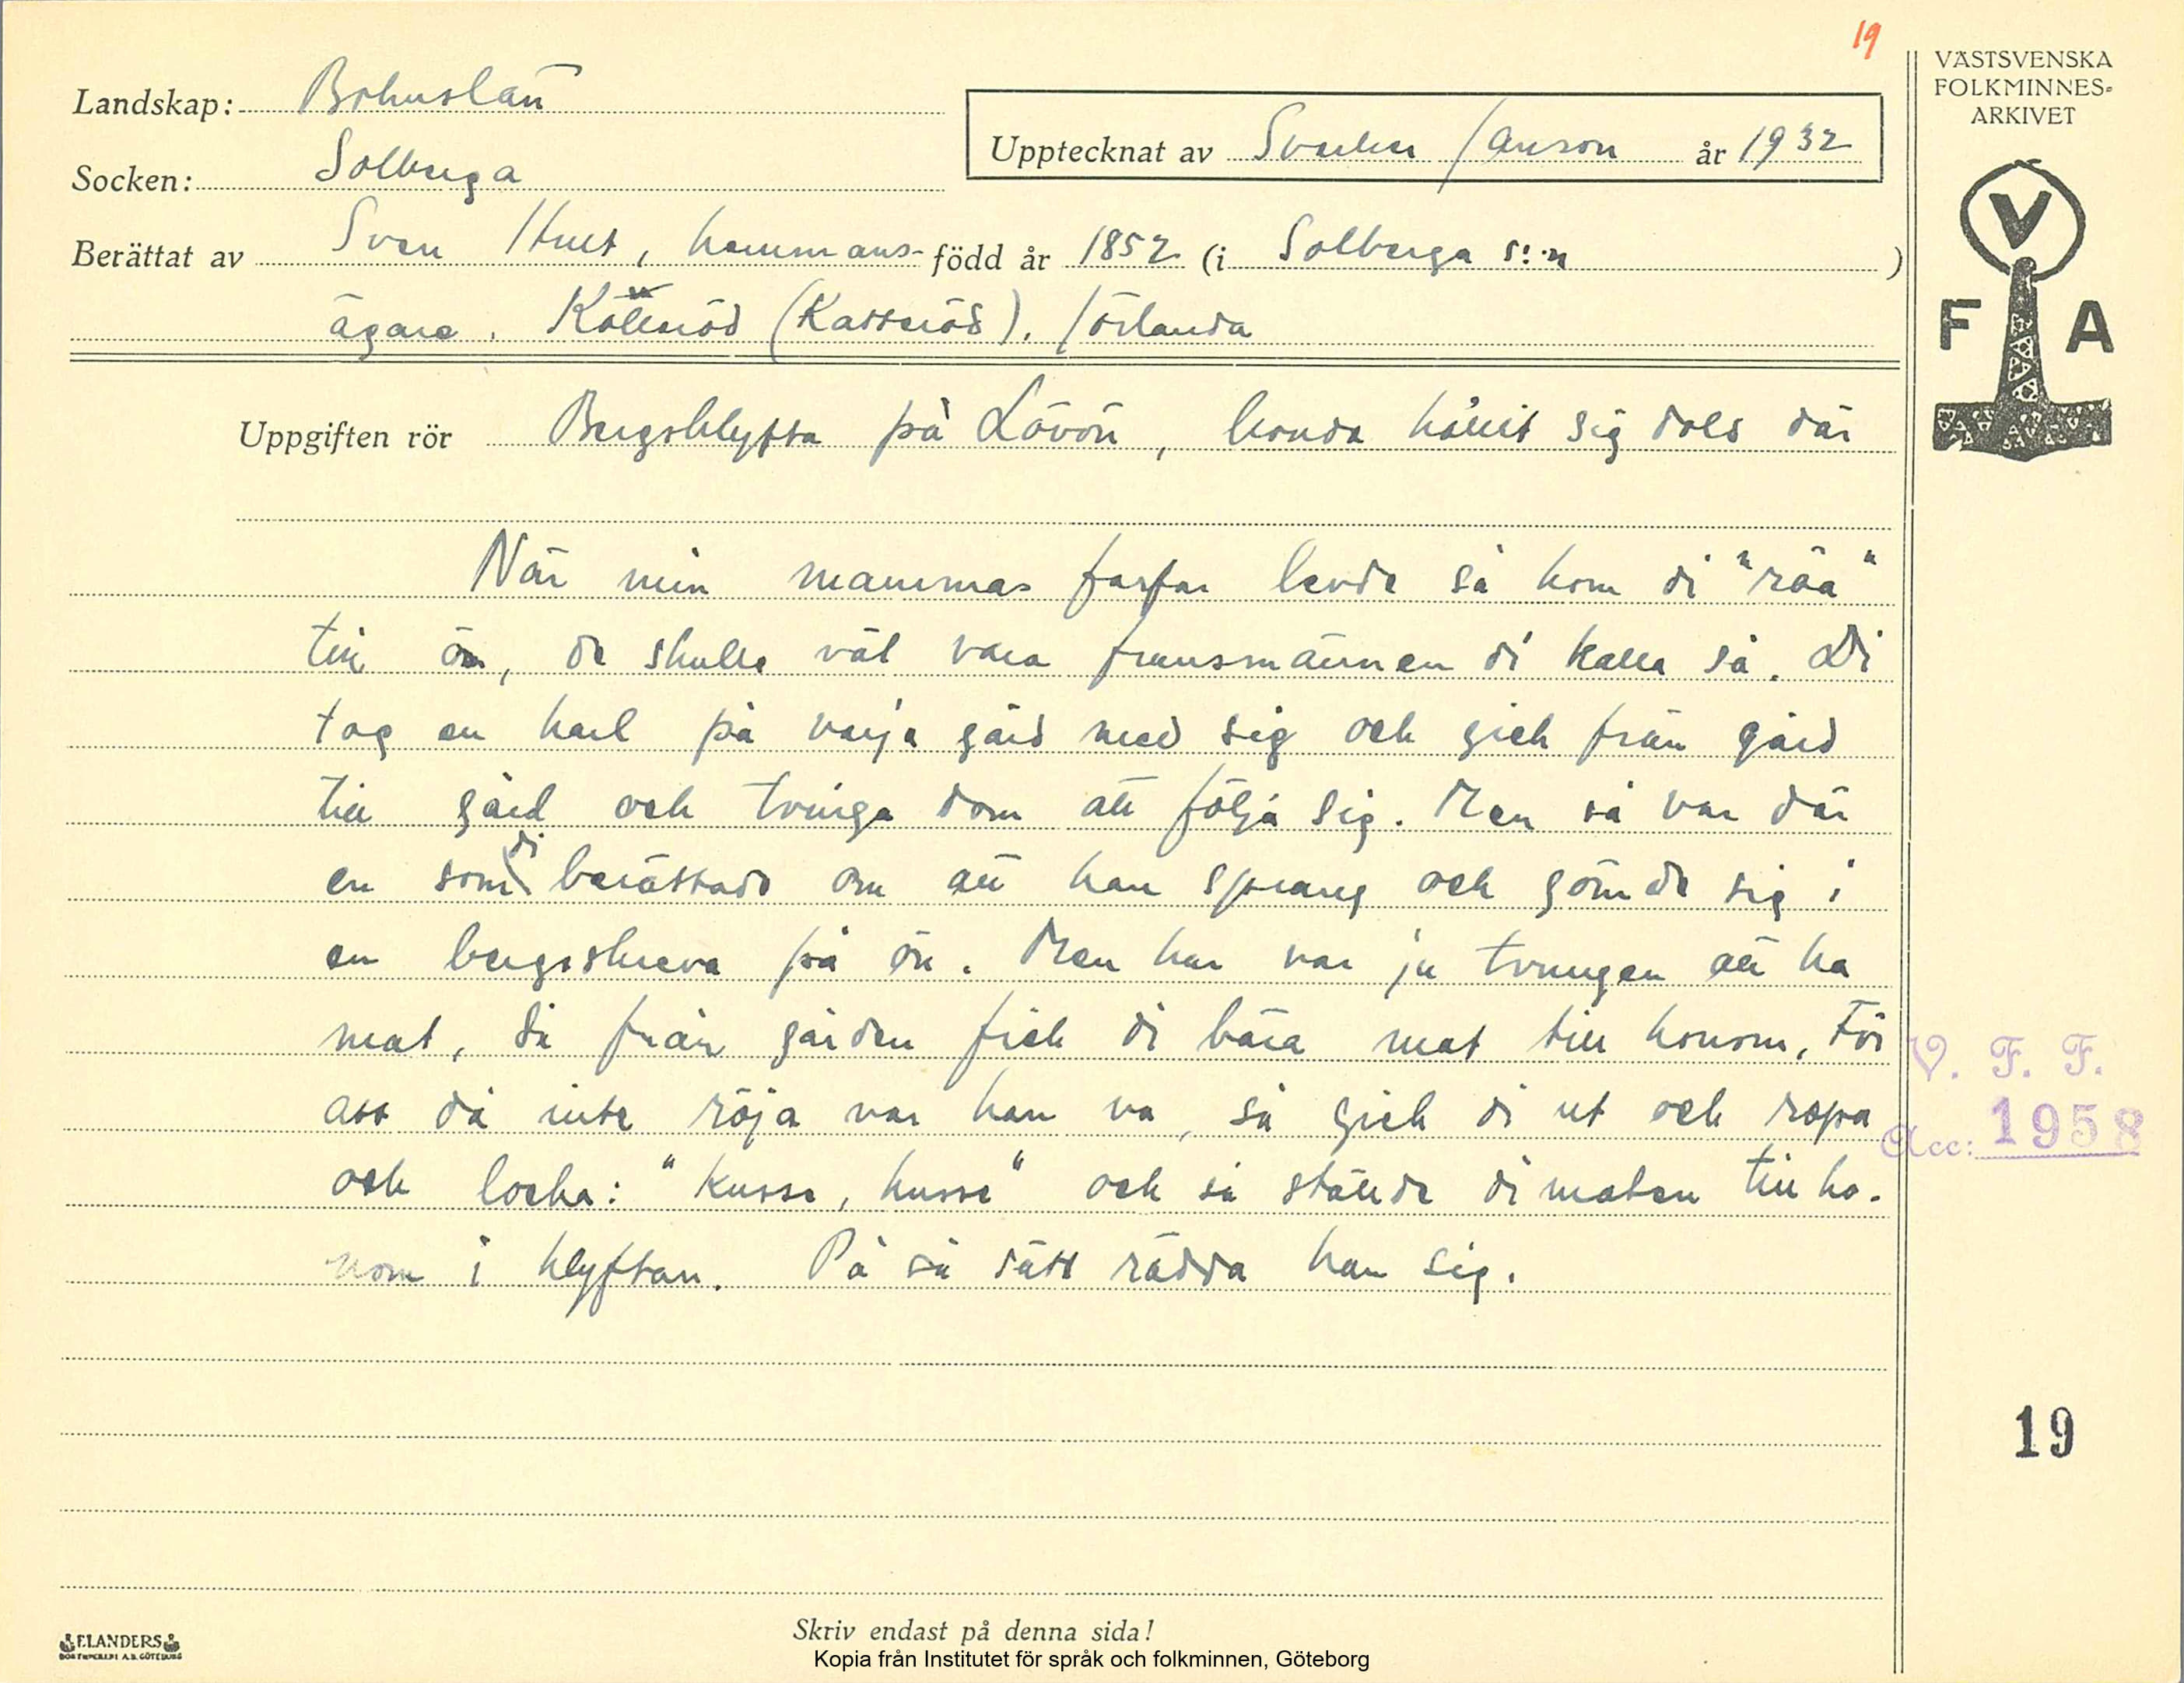 19
VÄSTSVENSKA
FOLKMINNES-
ARKIVET
Landskap: Bohuslän
Upptecknat av Sverker Janson år 1932
Socken: Solberga
Berättat av Sven Hult, hemmans- född år 1852 (i Solberga s:n )
ägare. (Kattenöd). Jörlanda
V
F A
Uppgiften rör Bergsklyfta på Lövön, bonda hållit sig dold där
När min mammas farfar levde så kom di "röa"
till ön, de skulle väl vara fransmännen di kalla så. Di
tog en karl på varja gård med sig och gick från gård
till gård och tvinga dom att följa sig. Men så var där
en som di berättade om att han sprang och gömde sig i
en bergsskreva på ön. Men han var ju tvungen att ha
mat, så från gården fick di bära mat till honom. För
att då inte röja var han va, så gick di ut och ropa
och locka: "Kusse, kusse" och så ställde di maten till ho-
nom i klyftan. På så sätt rädda han sig.
V. F. F.
Acc: 1958
19
Skriv endast på denna sida!
ELANDERS
BOKTRYCKERI A.B. GÖTEBORG
Kopia från Institutet för språk och folkminnen, Göteborg